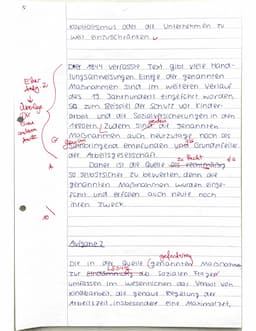 Kapitalismus oder die Unternehmen zu
weit einzuschränken.
Der 1844 verfasste Text gibt viele Hand-
lungsanweisungen. Einige der genannten
Maßnahmen sind im weiteren Verlauf
des 19. Jahrhundert eingeführt worden.
So zum Beispiel der Schutz vor Kinder-
arbeit und die Sozialversicherungen in den
Zudem sind die genannten
Maßnahmen auch heutzutage noch als
und Grundpfeiler
der Arbeitsgesellschaft.
Daher ist die Quelle als
so selbstsicher zu bewerten, denn die
genannten Maßnahmen wurden einge-
führt und erfüllen auch heute noch
ihren Zweck.
Aufgabe 2
Die in der Quelle genannten Maßnahmen
zur Lösung der Sozialen Frage
umfassen im Wesentlichen das Verbot von
Kinderarbeit, die genaue Regelung der
Arbeitszeit, insbesondere eine Maximalzeit,